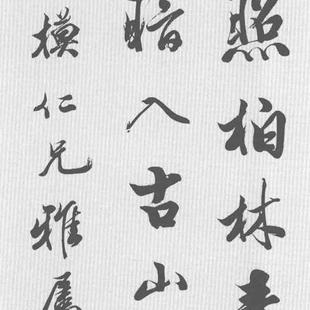 照柏林青
暗入古山
模仁兄雅属